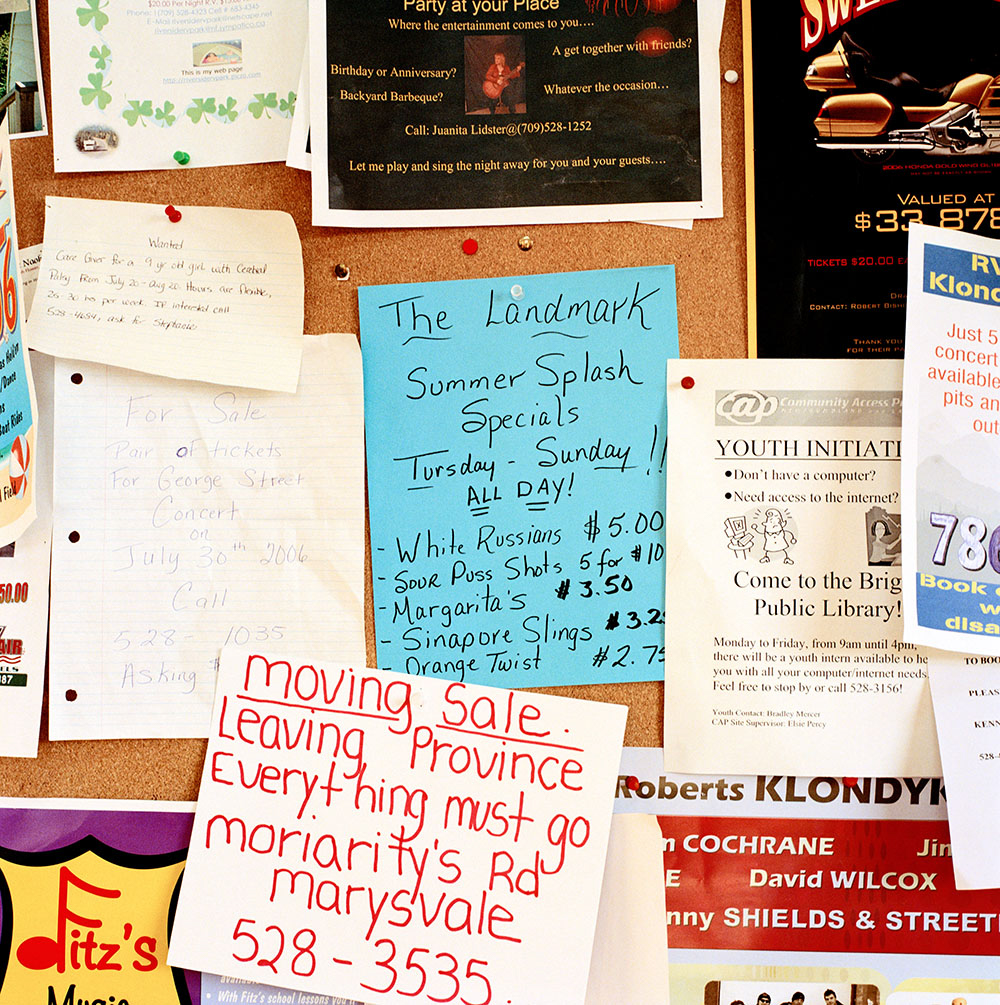 $20.00 Per Night R.V.
Phone: (709) 528-4323 Cell # 683-4345
This is my web page
Party at your Place
Where the entertainment comes to you….
A get together with friends?
Birthday or Anniversary?
Backyard Barbeque?
Whatever the occasion…
Call: Juanita Lidster@(709)528-1252
Let me play and sing the night away for you and your guests….
2006 HONDA GOLDWING
VALUED AT
$33,878
TICKETS $20.00 EA
CONTACT: ROBERT
THANK YOU
FOR THEIR
Wanted
Care Giver for a 9 yr old girl with Cerebral
Palsy from July 20 - Aug 20. Hours are flexible,
25-30 hrs per week. If intersted call
528-4684, ask for Stephanie
For Sale
Pair of tickets
For George Street
Concert
on
July 30th 2006
Call
528-1035
Asking $
The Landmark
Summer Splash
Specials
Tursday - Sunday!!
ALL DAY!
- White Russians $5.00
- Sour Puss Shots 5 for $10
- Margarita's $3.50
- Sinapore Slings $3.25
- Orange Twist $2.75
cap Community Access
YOUTH INITIATI
•Don't have a computer?
•Need access to the internet?
Come to the Brig
Public Library!
Monday to Friday, from 9am until 4pm,
there will be a youth intern available to he
you with all your computer/internet needs.
Feel free to stop by or call 528-3156!
Youth Contact: Bradley Mercer
CAP Site Supervisor: Elsie Percy
RV
Klond
Just 5
concert
available
pits an
out
786
Book
w
disa
TO BOO
PLEAS
KENN
528-
50.00
moving Sale.
Leaving Province
Everything must go
moriarity's Rd
marysvale
528-3535.
Fitz's
Music
• With Fitz's school lessons you
Roberts KLONDYK
m COCHRANE Jim
E David WILCOX
nny SHIELDS & STREETH